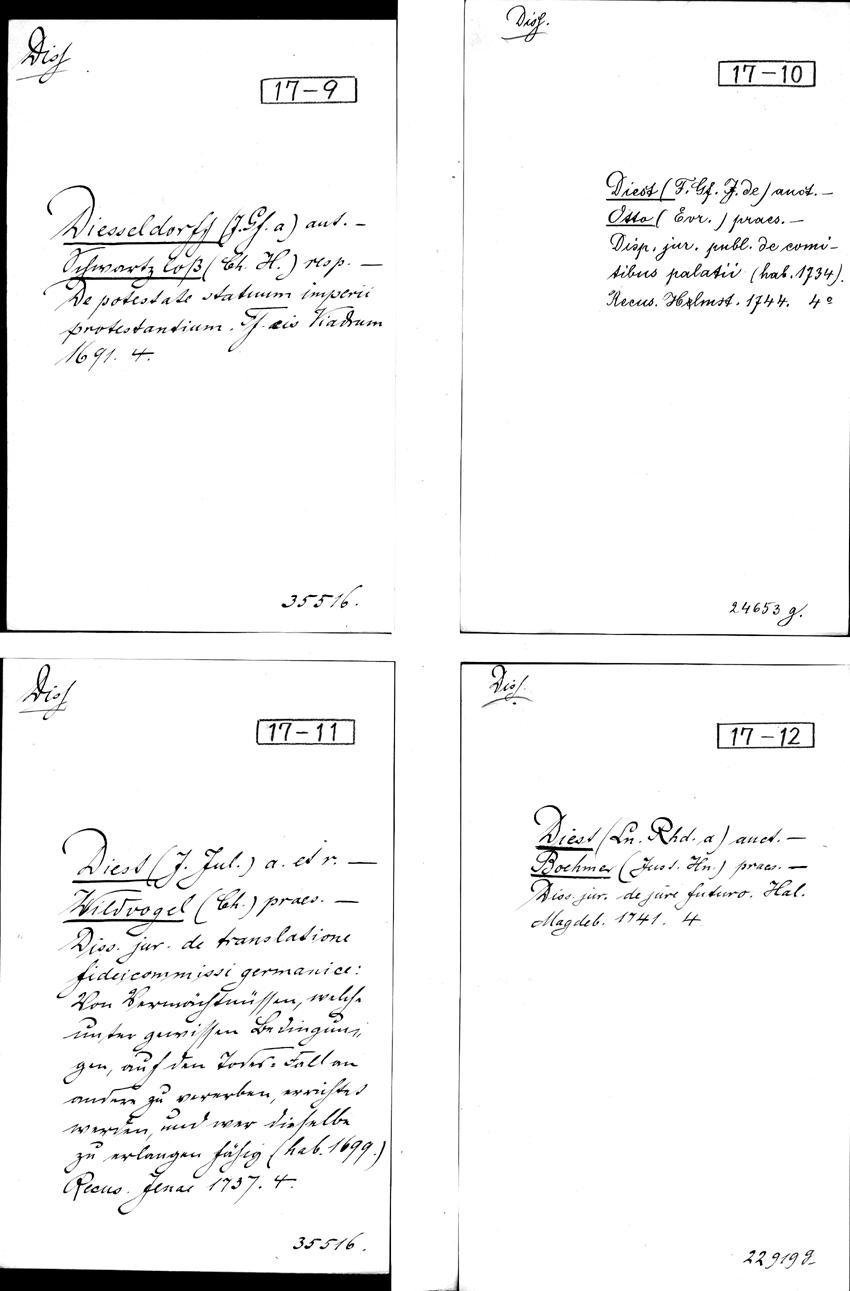 Diss
17-9
Diesseldorff (J. Gf. a) aut. —
Schwartz Loß (Ch. H.) resp. —
De potestate statuum imperii
protestantium. Tf. cis Viadrum
1691. 4.
35516.
Diss.
17-10
Diest (F. Gf. J. de) auct. —
Otto (Evr.) praes. —
Disp. jur. publ. de comi-
tibus palatii (hab. 1734).
Recus. Helmst. 1744. 4°
24653 g.
Diss
17-11
Diest (J. Jul.) a. et r. —
Wildvogel (Ch.) praes. —
Diss. jur. de translatione
fideicommissi germanice:
Von Vermächtnüssen, welche
unter gewissen Bedingun-
gen, auf den Todes-Fall an
andere zu vererben, errichtet
werden, und wer dieselbe
zu erlangen fähig (hab. 1699.)
Recus. Jenae 1737. 4.
35516.
Diss.
17-12
Diest (Ln. Rhd. a) auct. —
Boehmer (Just. Hn.) praes. —
Diss. jur. de jure futuro. Hal.
Magdeb. 1741. 4
22919 g